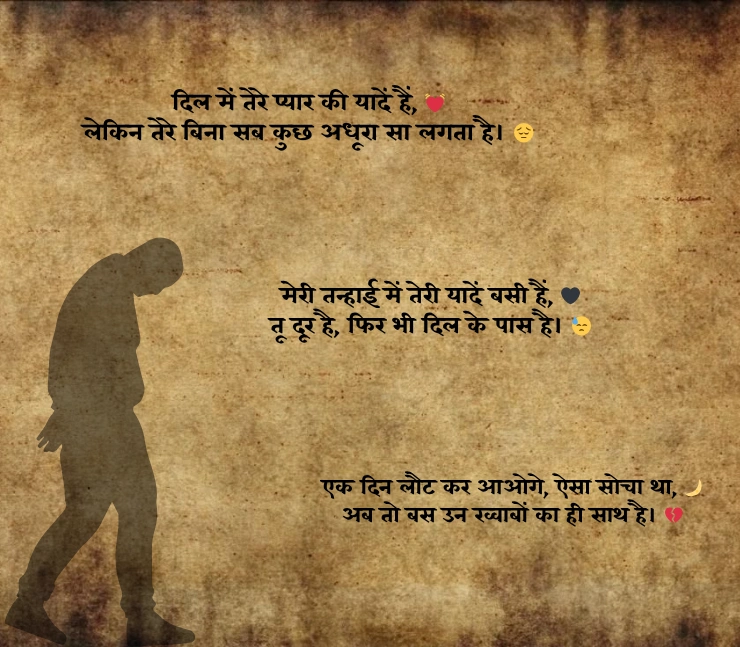 दिल में तेरे प्यार की यादें हैं, 💓
लेकिन तेरे बिना सब कुछ अधूरा सा लगता है। 😔
मेरी तन्हाई में तेरी यादें बसी हैं, 🖤
तू दूर है, फिर भी दिल के पास है। 😓
एक दिन लौट कर आओगे, ऐसा सोचा था, 🌙
अब तो बस उन ख्वाबों का ही साथ है। 💔